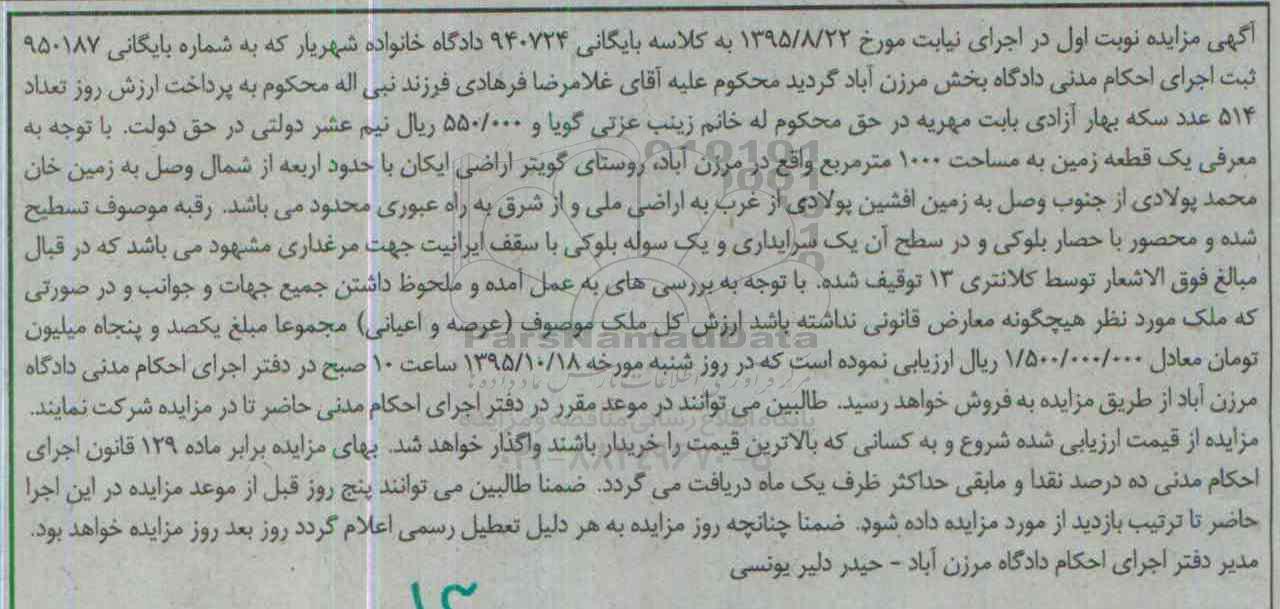 آگهی مزایده نوبت اول در اجرای نیابت مورخ ۱۳۹۵/۸/۲۲ به کلاسه بایگانی ۹۴۰۷۲۴ دادگاه خانواده شهریار که به شماره بایگانی ۹۵۰۱۸۷
ثبت اجرای احکام مدنی دادگاه بخش مرزن آباد گردید محکوم علیه آقای غلامرضا فرهادی فرزند نبی اله محکوم به پرداخت ارزش روز تعداد
۵۱۴ عدد سکه بهار آزادی بابت مهریه در حق محکوم له خانم زینب عزتی گویا و ۵۵۰/۰۰۰ ریال نیم عشر دولتی در حق دولت. با توجه به
معرفی یک قطعه زمین به مساحت ۱۰۰۰ مترمربع واقع در مرزن آباد، روستای گویتر اراضی ایکان با حدود اربعه از شمال وصل به زمین خان
محمد پولادی از جنوب وصل به زمین افشین پولادی از غرب به اراضی ملی و از شرق به راه عبوری محدود می باشد. رقبه موصوف تسطیح
شده و محصور با حصار بلوکی و در سطح آن یک سرایداری و یک سوله بلوکی با سقف ایرانیت جهت مرغداری مشهود می باشد که در قبال
مبالغ فوق الاشعار توسط کلانتری ۱۳ توقیف شده. با توجه به بررسی های به عمل آمده و ملحوظ داشتن جمیع جهات و جوانب و در صورتی
که ملک مورد نظر هیچگونه معارض قانونی نداشته باشد ارزش کل ملک موصوف (عرصه و اعیانی) مجموعا مبلغ یکصد و پنجاه میلیون
تومان معادل ۱/۵۰۰/۰۰۰/۰۰۰ ریال ارزیابی نموده است که در روز شنبه مورخه ۱۳۹۵/۱۰/۱۸ ساعت ۱۰ صبح در دفتر اجرای احکام مدنی دادگاه
مرزن آباد از طریق مزایده به فروش خواهد رسید. طالبین می توانند در موعد مقرر در دفتر اجرای احکام مدنی حاضر تا در مزایده شرکت نمایند.
مزایده از قیمت ارزیابی شده شروع و به کسانی که بالاترین قیمت را خریدار باشند واگذار خواهد شد. بهای مزایده برابر ماده ۱۲۹ قانون اجرای
احکام مدنی ده درصد نقدا و مابقی حداکثر ظرف یک ماه دریافت می گردد. ضمنا طالبین می توانند پنج روز قبل از موعد مزایده در این اجرا
حاضر تا ترتیب بازدید از مورد مزایده داده شود. ضمنا چنانچه روز مزایده به هر دلیل تعطیل رسمی اعلام گردد روز بعد روز مزایده خواهد بود.
مدیر دفتر اجرای احکام دادگاه مرزن آباد - حیدر دلیر یونسی
ParsNamadData
پایگاه اطلاع رسانی مناقصه و مزایده